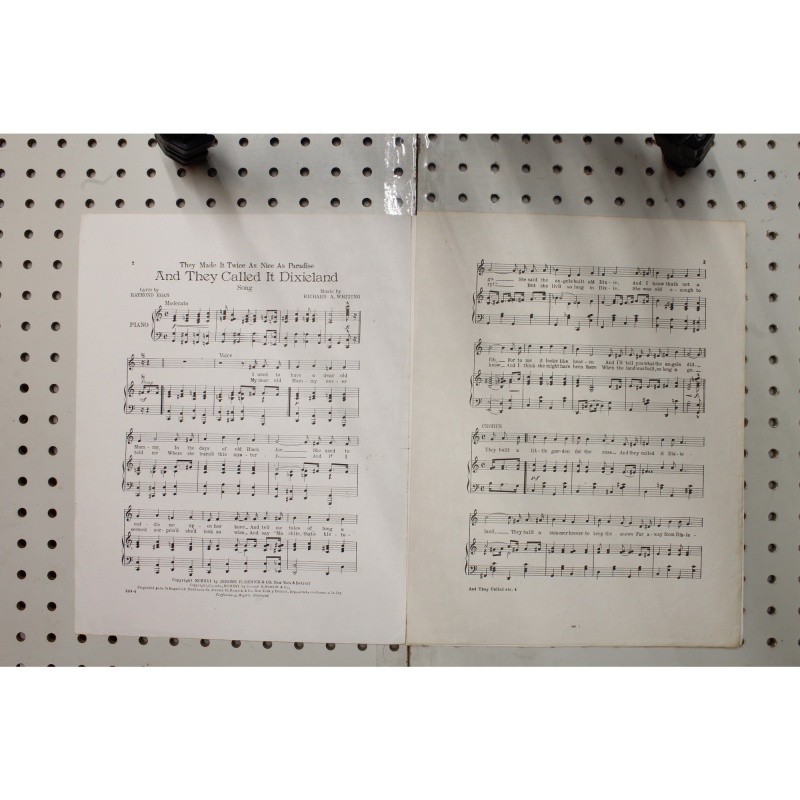 2
They Made It Twice As Nice As Paradise
And They Called It Dixieland
Song
Lyric by
RAYMOND EGAN
Music by
RICHARD A. WHITING
Moderato
PIANO
Voice
I used to have a dear old
My dear old Mam-my nev-er
Mam-my, In the days of old Black Joe She used to
told me Where she heard this
cud-dle me up-on her knee, And tell me tales of long a
seemed sur-pris'd she'd look so wise, And say
Copyright by JEROME H. REMICK & CO. New York & Detroit
3
go She said the an-gels built old Dix-ie, And I know that's not a
But she liv'd so long in Dix-ie, She was old e-nough to
fib, For to me it looks like heav-en And I'll tell you what the an-gels did
know, And I think she might have been there When the land was built, so long a go
CHORUS
They built a lit-tle gar-den for the rose And they called it Dix-ie-
land, They built a sum-mer breeze to keep the snows Far a-way from Dix-ie-
And They Called etc. 4